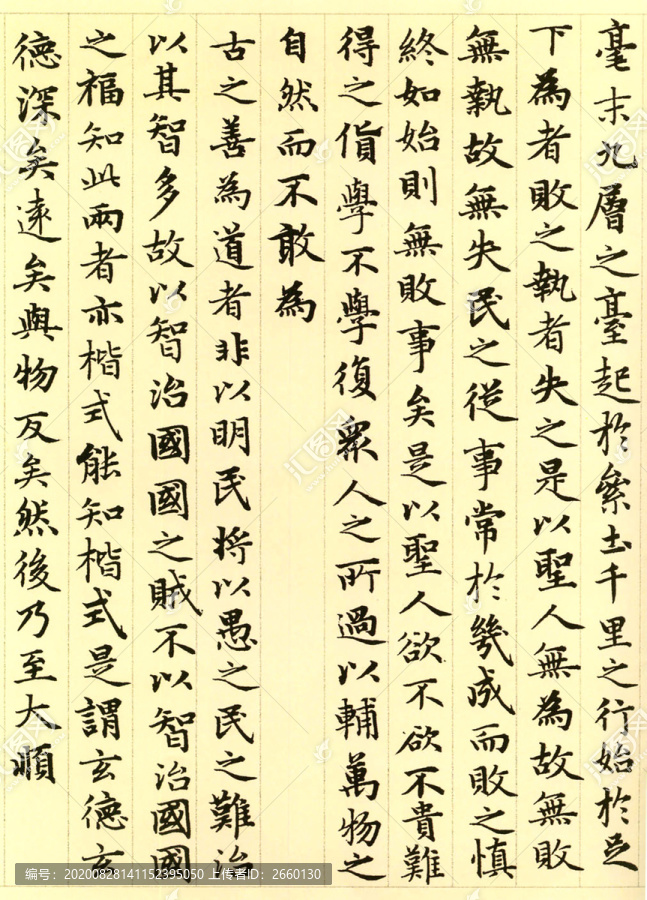 毫末九層之臺起於絫土千里之行始於足
下為者敗之執者失之是以聖人無為故無敗
無執故無失民之從事常於幾成而敗之慎
終如始則無敗事矣是以聖人欲不欲不貴難
得之貨學不學復眾人之所過以輔萬物之
自然而不敢為
古之善為道者非以明民將以愚之民之難治
以其智多故以智治國國之賊不以智治國國
之福知此兩者亦楷式能知楷式是謂玄德玄
德深矣遠矣與物反矣然後乃至大順
编号：20200828141152395050 上传者ID：2660130